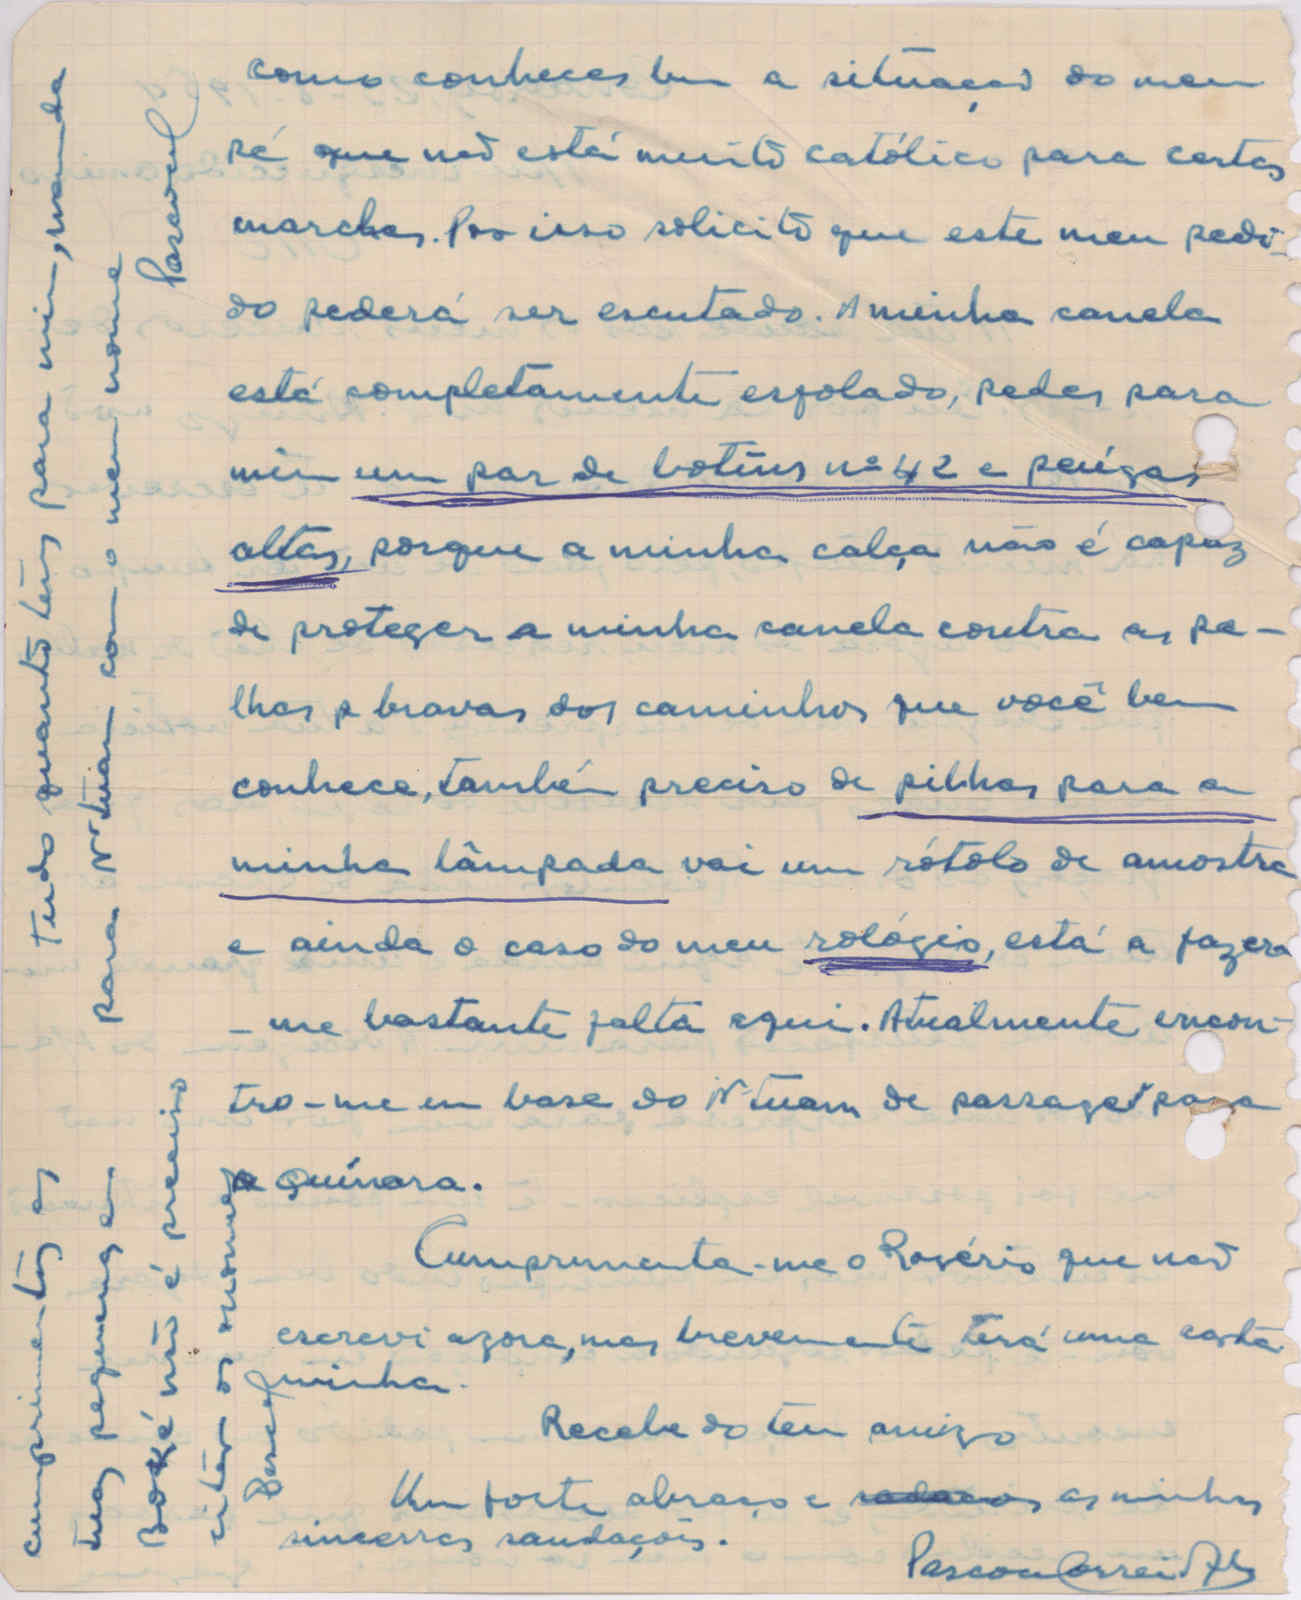 como conheces bem a situação do meu
pé que não está muito católico para certas
marchas. Por isso solicito que este meu pedi-
do pederá ser escutado. A minha canela
está completamente esfolado, pedes para
mim um par de botins nº 42 e peúgas
altas, porque a minha calça não é capaz
de proteger a minha canela contra as pa-
lhas bravas dos caminhos que você bem
conhece, também preciso de pilhas para a
minha lâmpada vai um rótolo de amostra
e ainda o caso do meu rològio, está a fazer
-me bastante falta aqui. Atualmente encon-
tro-me em base do N'Tuam de passage para
Quínara.
Cumprimenta-me o Rogério que não
escrevi agora, mas brevemente terá uma carta
minha.
Recebe do teu amigo
Um forte abraço e as minhas
sinceras saudações.
Pascoal Correia
Tudo quanto tens para mim, manda
para N'Tuam com o meu nome
Pascoal
cumprimentos as
tuas pequenas em
Boké não é preciso
citar os nomes
Pascoal